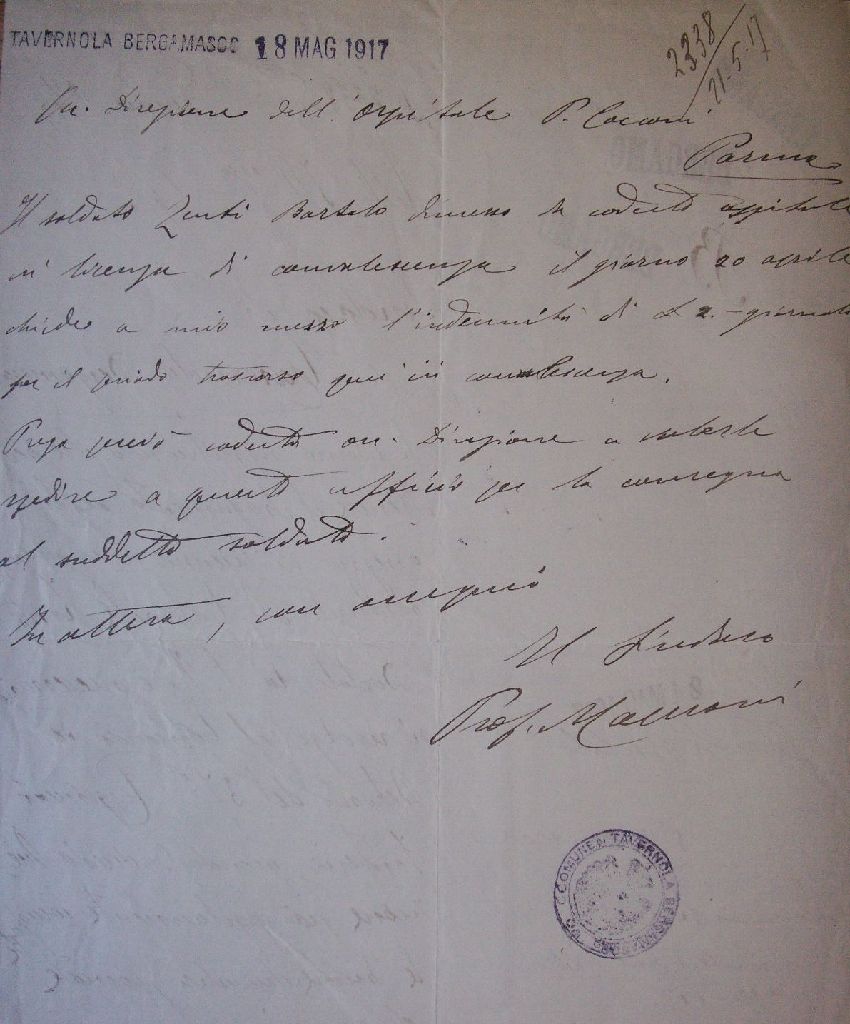 TAVERNOLA BERGAMASCO 18 MAG 1917
2338
21-5-17
On. Direzione dell'Ospitale P. Cocconi
Parma
Il soldato Zenti Bortolo dimesso da codesto ospitale
in licenza di convalescenza il giorno 20 aprile
chiede a mio mezzo l'indennità di L 2.- giornal.
per il periodo trascorso qui in convalescenza.
Prego perciò codesta on. Direzione a volerla
spedire a questo ufficio per la consegna
al suddetto soldato.
In attesa, con ossequio
Il Sindaco
Prof.
COMUNE DI TAVERNOLA BERGAMASCO